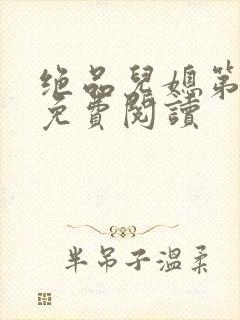 绝品兒媳第
免費閱讀
半吊子溫柔